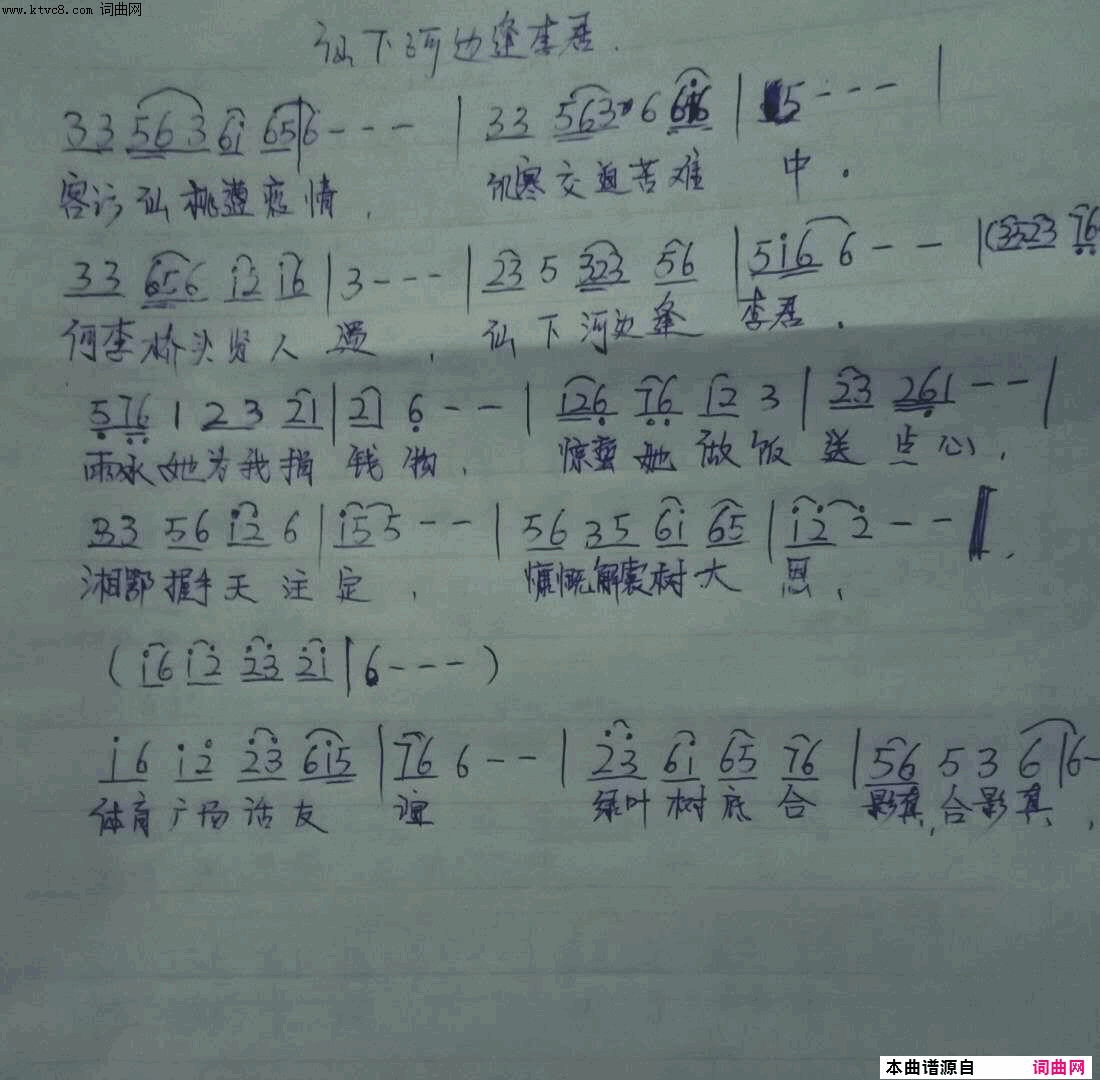 www.ktvc8.com 词曲网
仙下河边逢李君.
33 563 6i 656 - - - | 33 563 6 6i6 | 5 - - - |
客访仙桃遭疫情, 饥寒交迫苦难 中.
33 656 i2 i6 | 3 - - - | 23 5 323 56 | 5i6 6 - - | (3523 76
何李桥头 人 遇, 仙下河边逢 李君.
576 1 23 21 | 21 6 - - | 126 76 12 3 | 23 261 - - |
雨水她为我捐 钱物. 惊蛰她做饭 送点心,
33 56 i2 6 | i5 5 - - | 56 35 6i 65 | i2 2 - - ‖.
湘鄂握手天 注定, 慷慨解囊树大 恩,
(i6 i2 23 2i | 6 - - - )
i6 i2 23 6i5 | 76 6 - - | 23 6i 65 76 | 56 5 3 6 | 6 -
体育广场话友 谊 绿叶树底合 影真,合影真,
本曲谱源自 词曲网